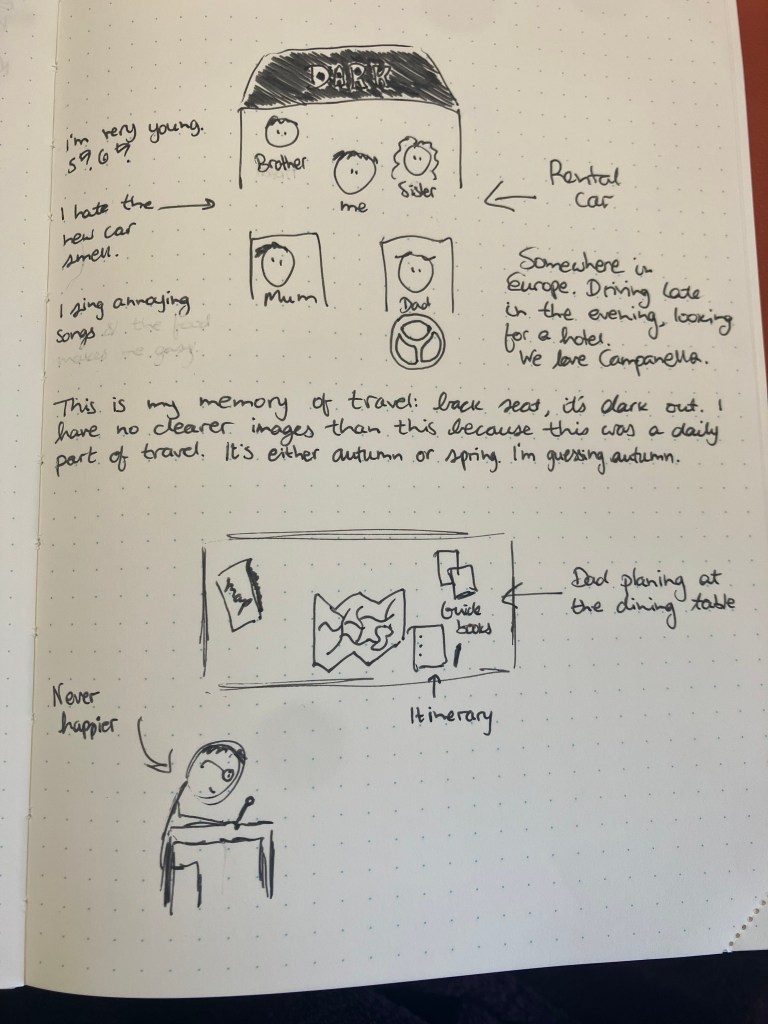 DARK
I'm very young.
5? 6?
Brother
me
Sister
Rental
car
I hate the
new car
smell.
Mum
Dad
I sing annoying
songs
Somewhere in
Europe. Driving late
in the evening, looking
for a hotel.
We love Campanella.
This is my memory of travel: back seat, it's dark out. I
have no clearer images than this because this was a daily
part of travel. It's either autumn or spring. I'm guessing autumn.
Map
Guide
books
Dad planing at
the dining table
Itinerary
Never
happier